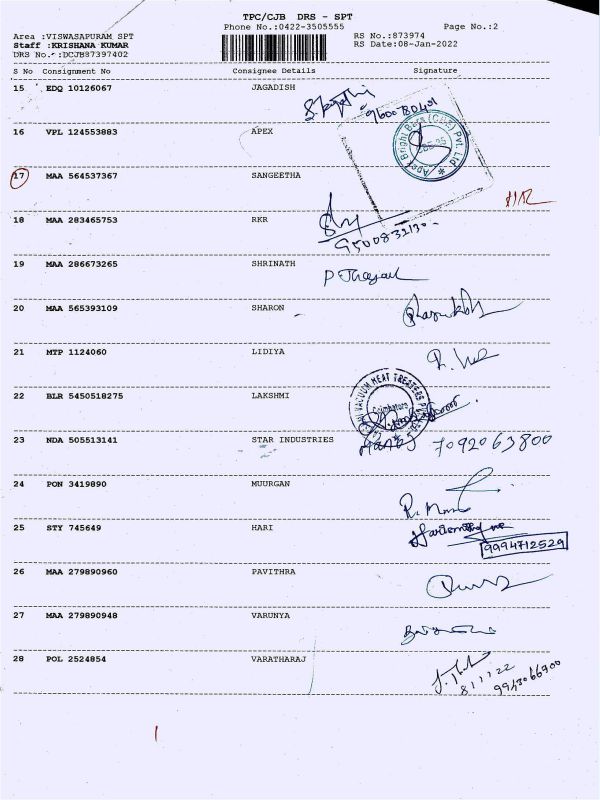 TPC/CJB DRS - SPT
Phone No.:0422-3505555 Page No.:2
Area :VISWASAPURAM SPT RS No.:873974
Staff :KRISHANA KUMAR RS Date:08-Jan-2022
DRS No.:DCJB87397402
S No Consignment No Consignee Details Signature
15 EDQ 10126067 JAGADISH
16 VPL 124553883 APEX
17 MAA 564537367 SANGEETHA
18 MAA 283465753 RKR
9500832130
19 MAA 286673265 SHRINATH
20 MAA 565393109 SHARON
21 MTP 1124060 LIDIYA
22 BLR 5450518275 LAKSHMI
VACUUM HEAT TREATERS
Coimbatore
23 NDA 505513141 STAR INDUSTRIES 7092063800
24 PON 3419890 MUURGAN
25 STY 745649 HARI
9994712529
26 MAA 279890960 PAVITHRA
27 MAA 279890948 VARUNYA
28 POL 2524854 VARATHARAJ
8/1/22
9943066900